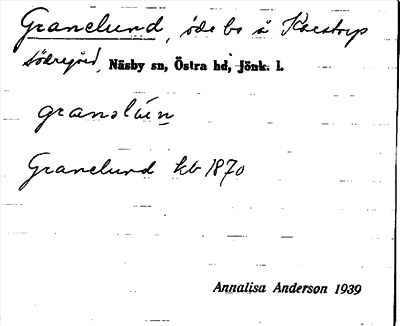 Granelund, öde bs å Karstorp
södregård, Näsby sn, Östra hd, Jönk. l.
granəlún
Granelund kb 1870
Annalisa Anderson 1939